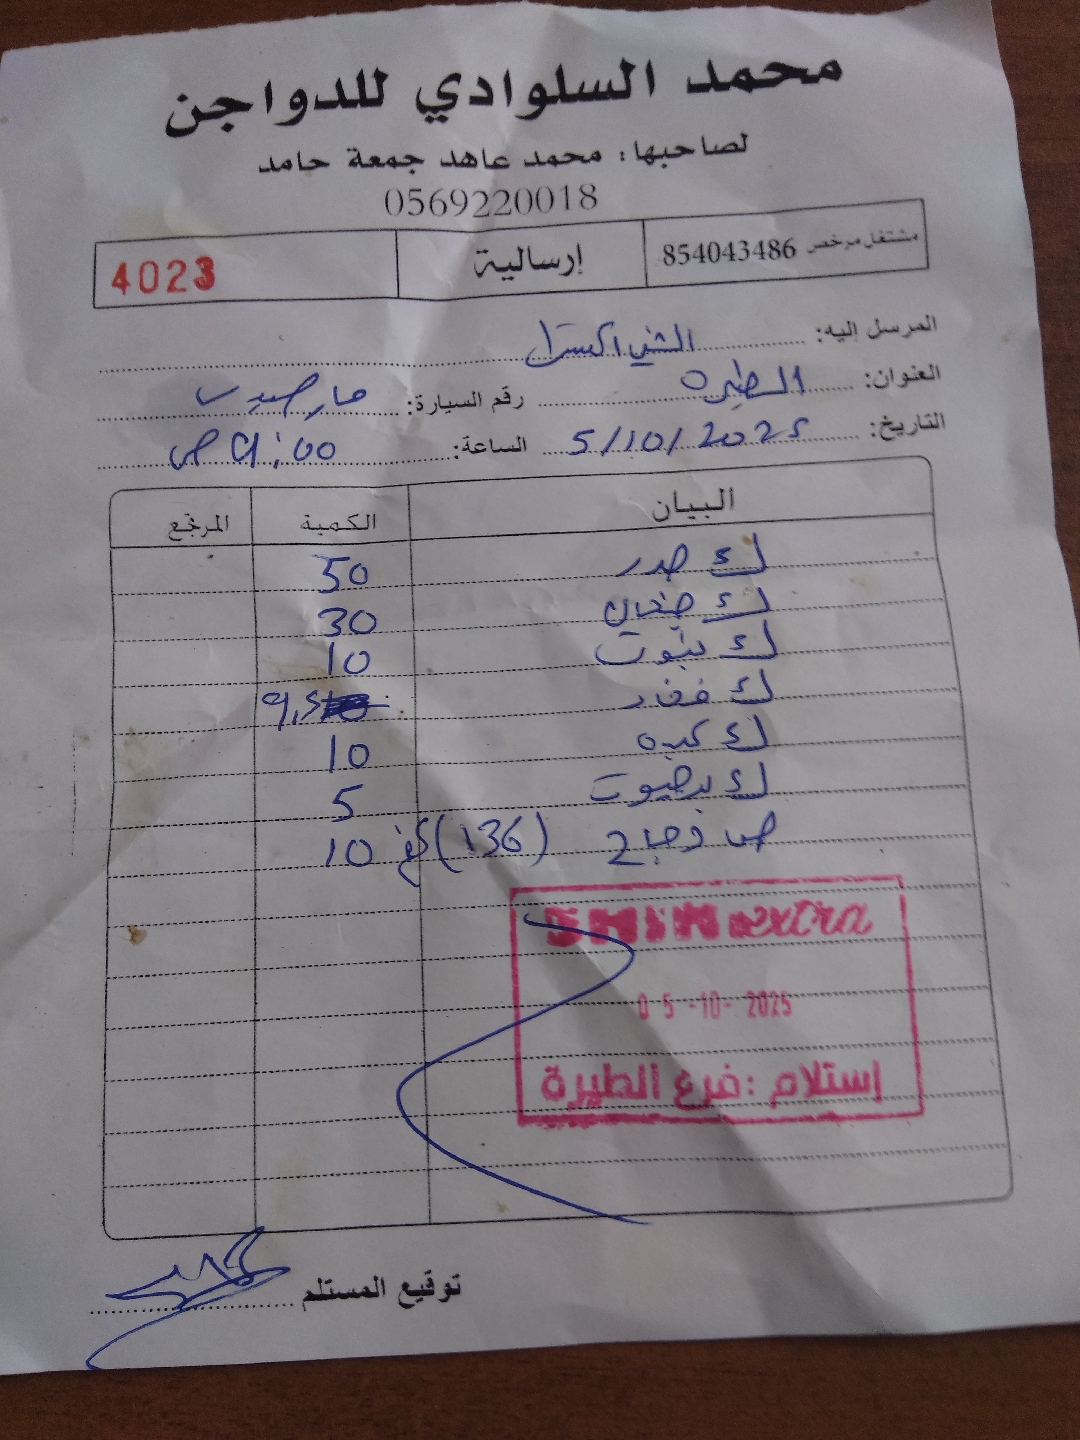 محمد السلوادي للدواجن
لصاحبها: محمد عاهد جمعة حامد
0569220018
مشتغل مرخص 854043486 إرسالية 4023
المرسل إليه: الشني اكسترا
العنوان: الطيره رقم السيارة:
التاريخ: 5/10/2025 الساعة: 9:00 ص
البيان الكمية المرتجع
ك صدر 50
ك 30
ك 10
ك 9,5
ك كبده 10
ك 5
ص دجاج (136) كغ 10
extra
05-10-2025
إستلام : فرع الطيرة
توقيع المستلم